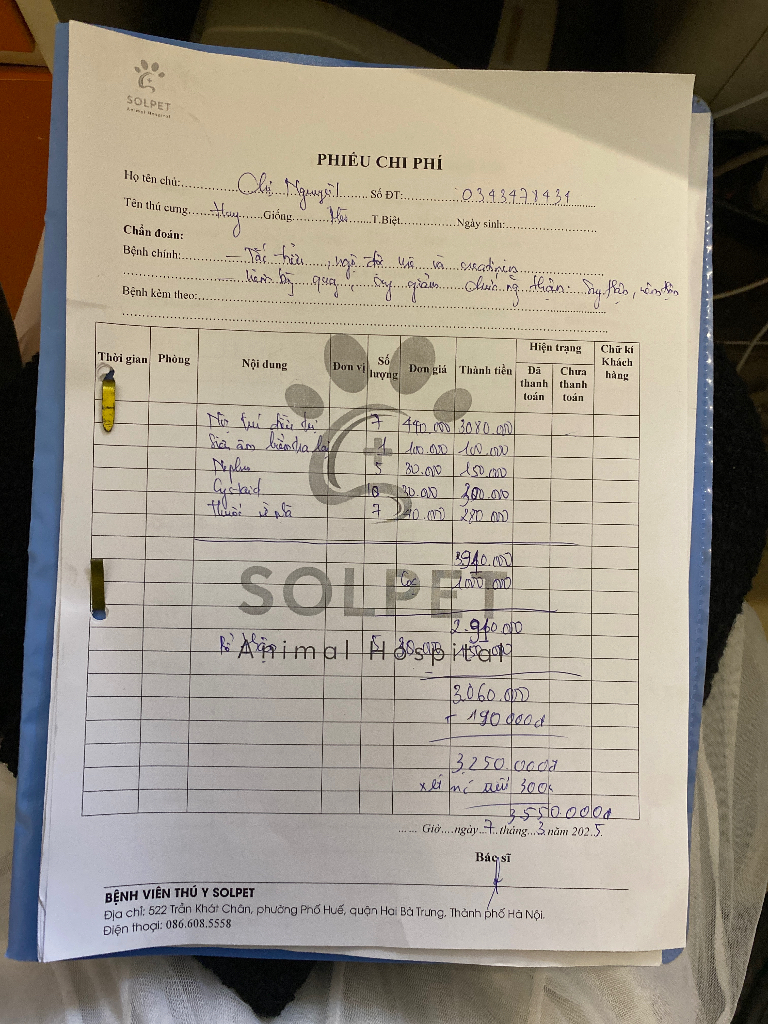 SOLPET
Animal Hospital
PHIẾU CHI PHÍ
Họ tên chủ: Chị Nguyệt Số ĐT: 0343471431
Tên thú cưng Giống T.Biệt Ngày sinh:
Chẩn đoán:
Bệnh chính: - Tắc tiểu, ngộ độc và
- viêm bàng quang, suy giảm chức năng thận:
Bệnh kèm theo:
Thời gian Phòng Nội dung Đơn vị Số lượng Đơn giá Thành tiền Hiện trạng Đã thanh toán Chưa thanh toán Chữ kí Khách hàng
Nội trú điều trị 7 440.000 3080.000
Siêu âm kiểm tra lại 1 100.000 100.000
Nephro 5 30.000 150.000
Cystaid 10 30.000 300.000
thuốc về nhà 7 40.000 280.000
3910.000
Cọc 1000.000
SOLPET
2.910.000
5 30.000 150.000
Animal Hospital
3.060.000
+ 190.000đ
3.250.000đ
300k
3.550.000đ
Giờ....ngày 7 tháng 3 năm 2025.
Bác sĩ
BỆNH VIÊN THÚ Y SOLPET
Địa chỉ: 522 Trần Khát Chân, phường Phố Huế, quận Hai Bà Trưng, Thành phố Hà Nội.
Điện thoại: 086.608.5558